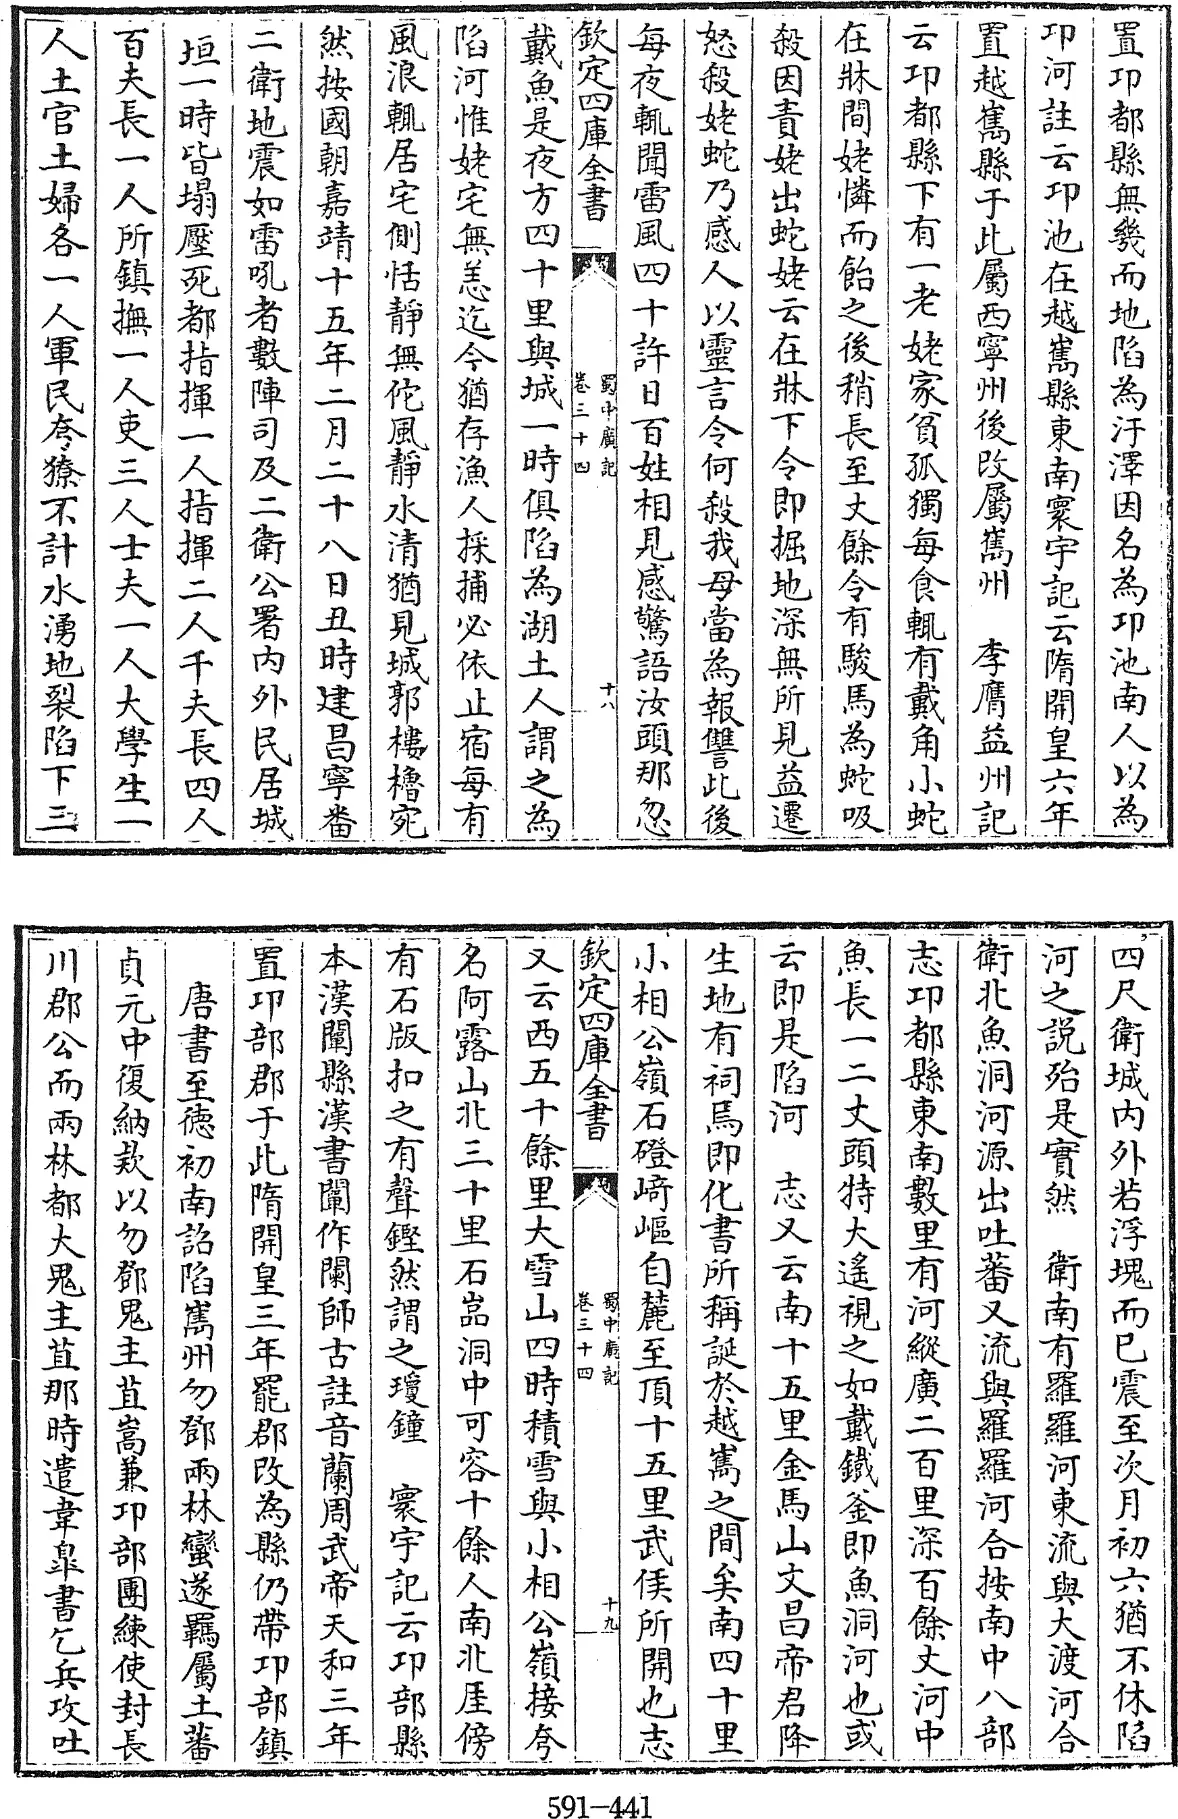 置邛都縣無幾而地陷為汙澤因名為邛池南人以為
邛河註云邛池在越嶲縣東南寰宇記云隋開皇六年
置越嶲縣于此屬西寧州後改屬嶲州　李膺益州記
云邛都縣下有一老姥家貧孤獨每食輒有戴角小蛇
在牀間姥憐而飴之後稍長至丈餘令有駿馬為蛇吸
殺因責姥出蛇姥云在牀下令即掘地深無所見益遷
怒殺姥蛇乃感人以靈言令何殺我母當為報讐此後
每夜輒聞雷風四十許日百姓相見感驚語汝頭那忽
欽定四庫全書
蜀中廣記
卷三十四
十八
戴魚是夜方四十里與城一時俱陷為湖土人謂之為
陷河惟姥宅無恙迄今猶存漁人採捕必依止宿每有
風浪輒居宅側恬靜無佗風靜水清猶見城郭樓櫓宛
然按國朝嘉靖十五年二月二十八日丑時建昌寧番
二衛地震如雷吼者數陣司及二衛公署內外民居城
垣一時皆塌壓死都指揮一人指揮二人千夫長四人
百夫長一人所鎮撫一人吏三人士夫一人大學生一
人土官土婦各一人軍民夸獠不計水湧地裂陷下三
四尺衛城內外若浮塊而已震至次月初六猶不休陷
河之說殆是實然　衛南有羅羅河東流與大渡河合
衛北魚洞河源出吐蕃又流與羅羅河合按南中八部
志邛都縣東南數里有河縱廣二百里深百餘丈河中
魚長一二丈頭特大遙視之如戴鐵釜即魚洞河也或
云即是陷河　志又云南十五里金馬山文昌帝君降
生地有祠焉即化書所稱誕於越嶲之間矣南四十里
小相公嶺石磴崎嶇自麓至頂十五里武侯所開也志
欽定四庫全書
蜀中廣記
卷三十四
十九
又云西五十餘里大雪山四時積雪與小相公嶺接夸
名阿露山北三十里石嵓洞中可容十餘人南北厓傍
有石版扣之有聲鏗然謂之瓊鐘　寰宇記云邛部縣
本漢闌縣漢書闌作闌師古註音蘭周武帝天和三年
置邛部郡于此隋開皇三年罷郡改為縣仍帶邛部鎮
唐書至德初南詔陷嶲州勿鄧兩林蠻遂羈屬土蕃
貞元中復納款以勿鄧鬼主苴嵩兼邛部團練使封長
川郡公而兩林都大鬼主苴那時遣韋臯書乞兵攻吐
591-441